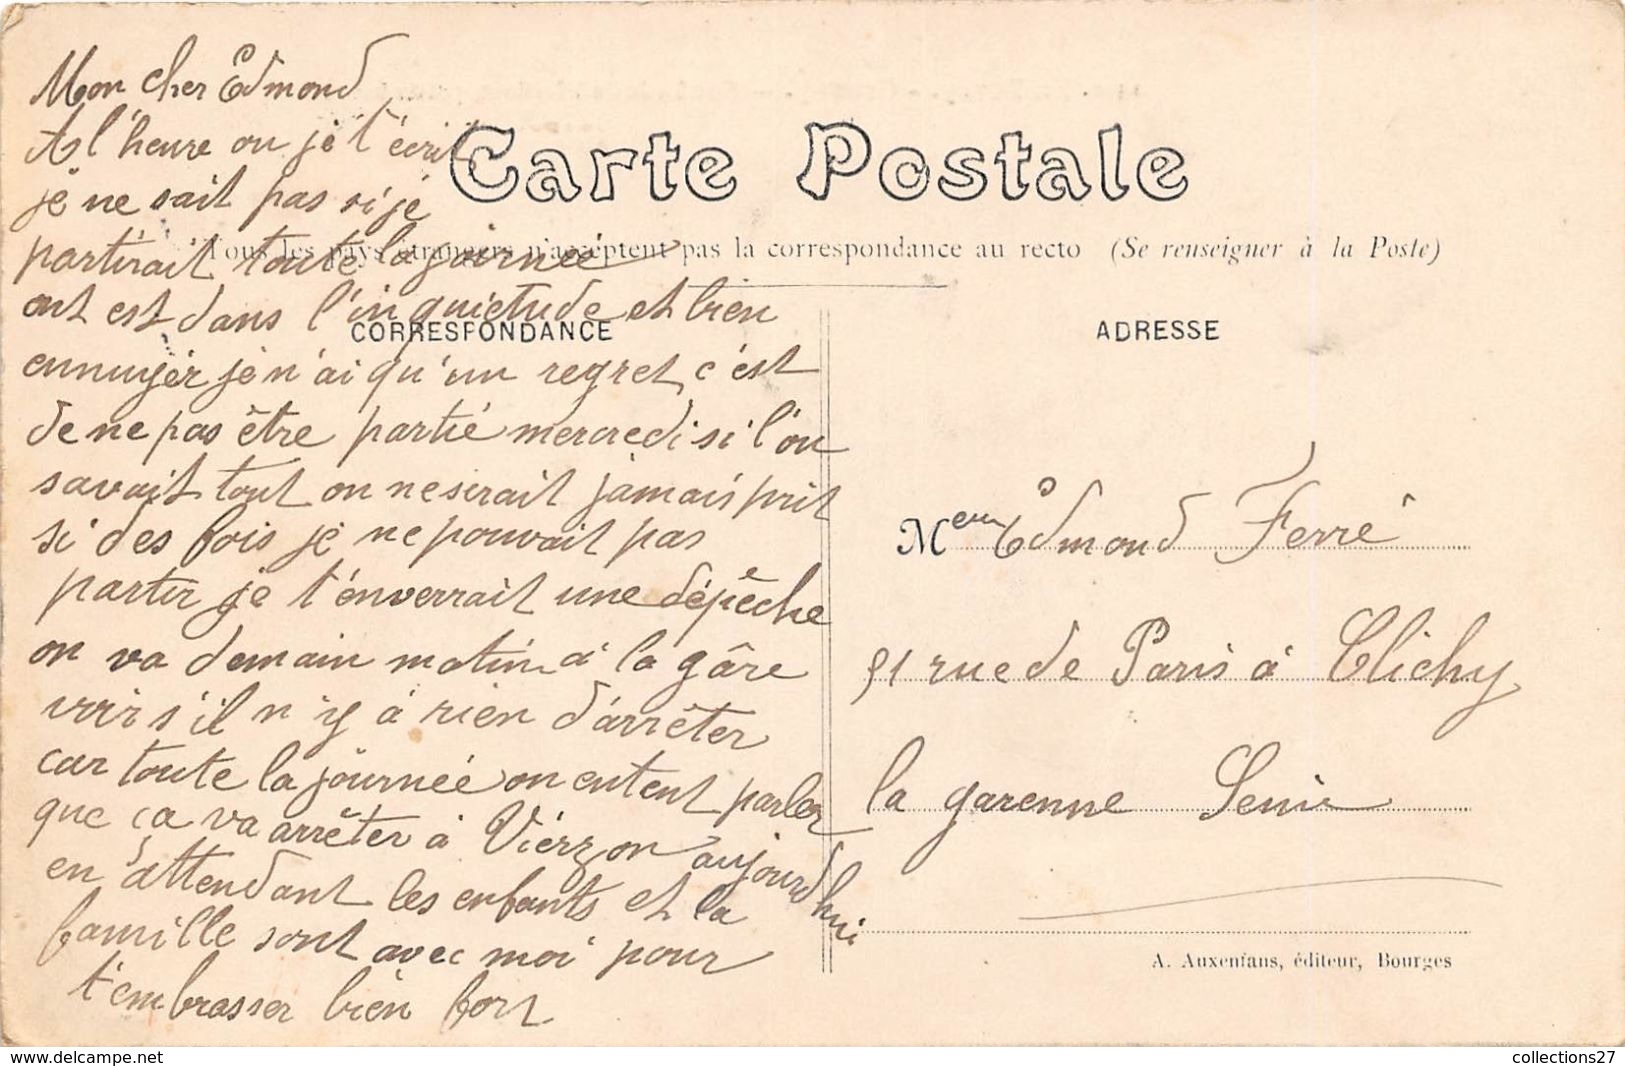 Mon cher Edmond
A l'heure ou je t'écrit
je ne sait pas si je
partirait toute la journée
ont est dans l'inquietude et bien
ennuyér je n'ai qu'un regret c'est
de ne pas être partié mercredi si l'on
savait tout on neserait jamais prit
si des fois je ne pouvait pas
partir je t'énverrait une dépêche
on va demain matin à la gâre
voir s'il n'iy à rien d'arrêter
car toute la journée on entent parler
que ça va arrêter à Viérzon aujourd'hui
en attendant les enfants et la
famille sont avec moi pour
t'embrasser bién fort
Carte Postale
Tous les pays étrangers n'acceptent pas la correspondance au recto (Se renseigner à la Poste)
CORRESPONDANCE
ADRESSE
M Edmond Ferré
51 rue de Paris à Clichy
la garenne Seine
A. Auxenfans, éditeur, Bourges
collections27